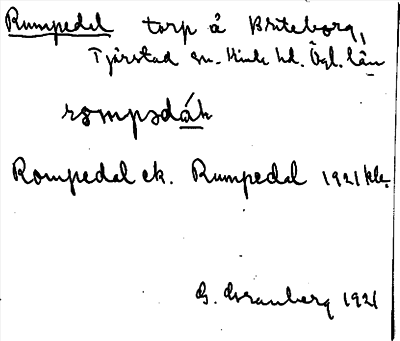 Rumpedal torp å Briteborg,
Tjärstad sn. Kinda hd. Ögl. län
rompədàḷ
Rompedal ek. Rumpedal 1921 kle.
G. Granberg 1921